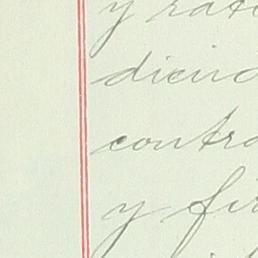 y rat
dicien
contra
y fir